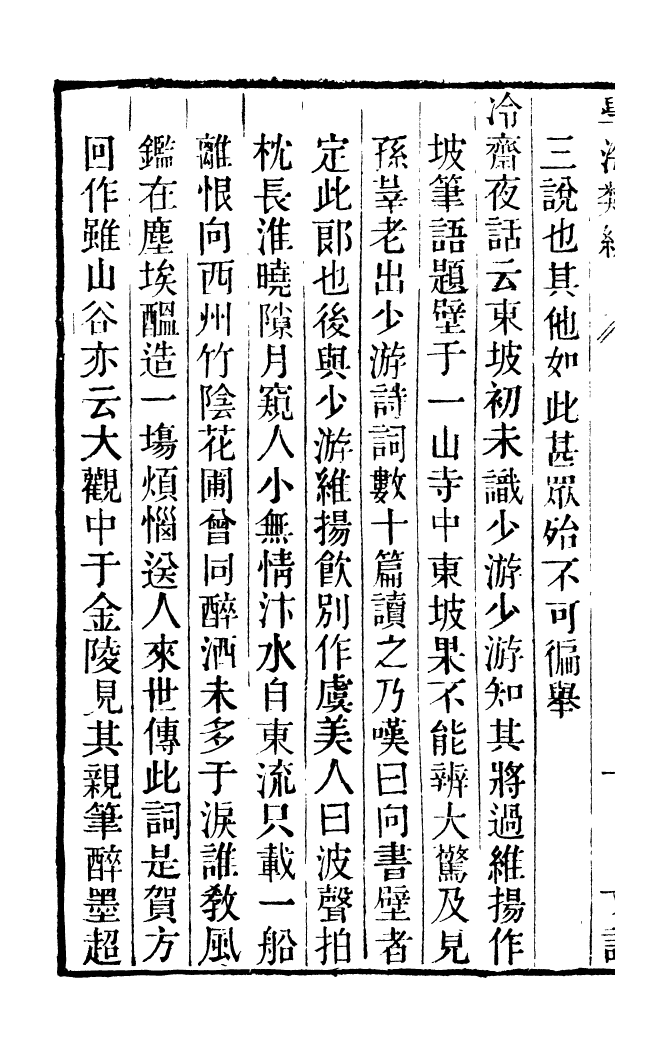 三說也其他如此甚眾殆不可徧舉
冷齋夜話云東坡初未識少游少游知其將過維揚作
坡筆語題壁于一山寺中東坡果不能辨大驚及見
孫莘老出少游詩詞數十篇讀之乃嘆曰向書壁者
定此郎也後與少游維揚飲別作虞美人曰波聲拍
枕長淮曉隙月窺人小無情汴水自東流只載一船
離恨向西州竹陰花圃曾同醉酒未多于淚誰教風
鑑在塵埃醞造一場煩惱送人來世傳此詞是賀方
回作雖山谷亦云大觀中于金陵見其親筆醉墨超